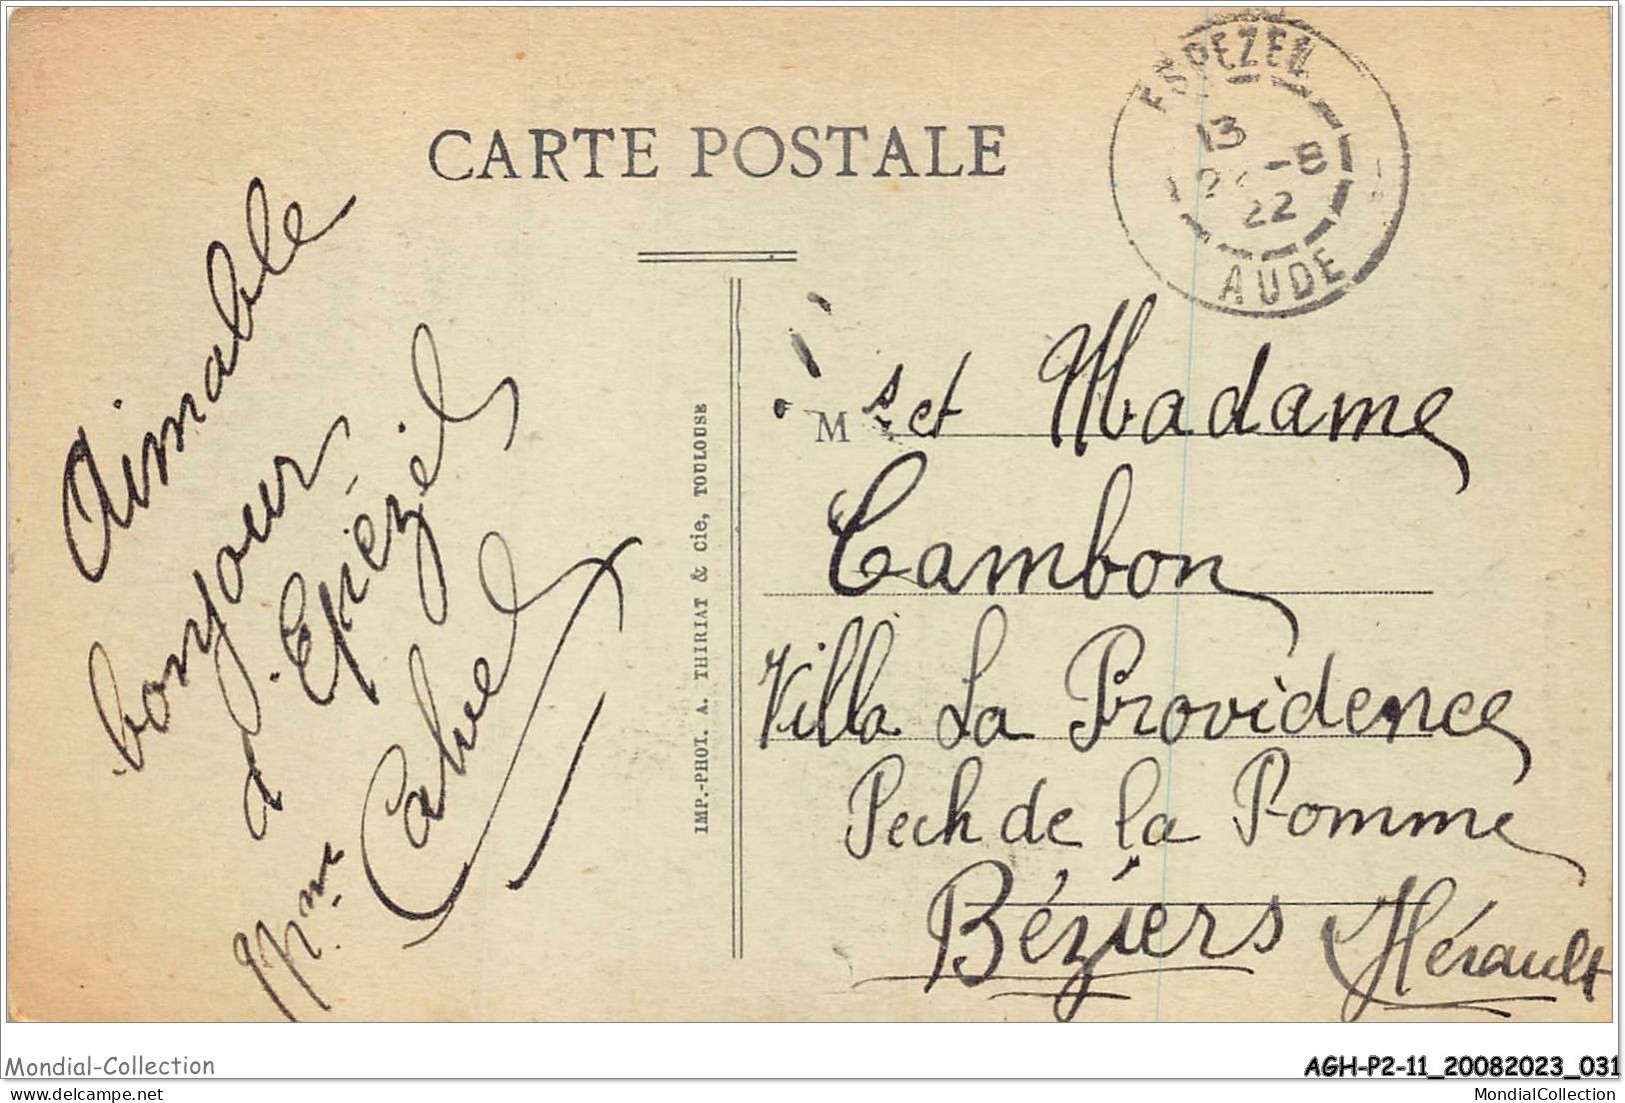 CARTE POSTALE
ESPEZEL
13
-8
22
AUDE
Aimable
bonjour
d'Epiézel
Mme Cahuel
IMP.-PHOT. A. THIRIAT & Cie, TOULOUSE
Mrs et Madame
Cambon
Villa La Providence
Pech de la Pomme
Béziers (Hérault
Mondial-Collection
AGH-P2-11_20082023_031
www.delcampe.net
MondialCollection